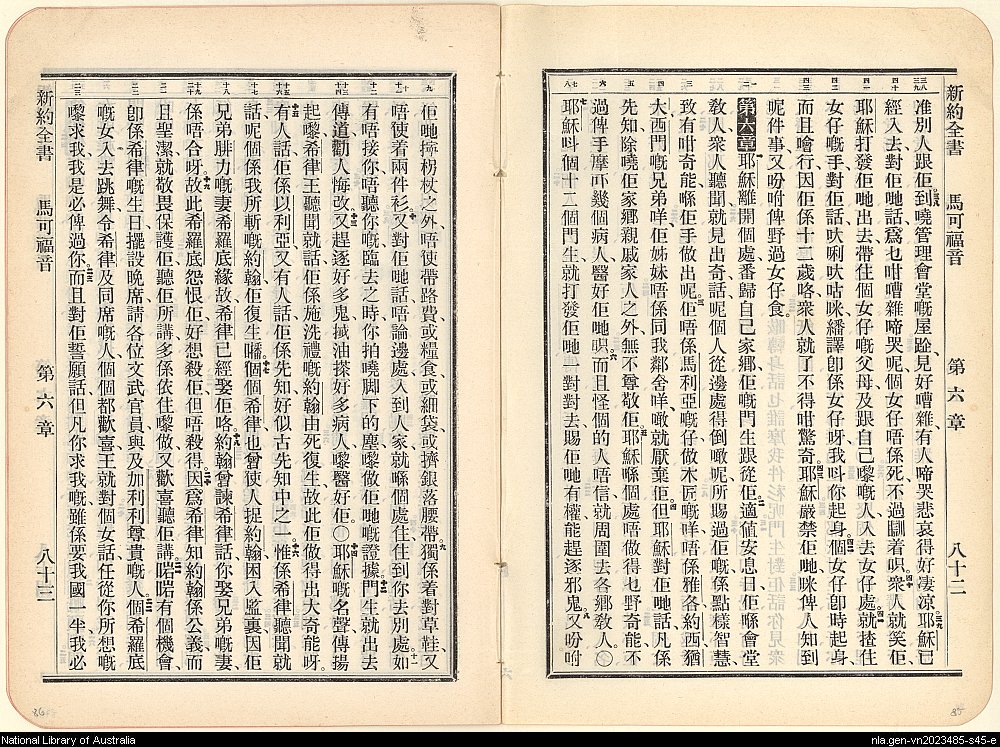 新約全書 馬可福音 第六章 八十二
准別人跟佢到嘵管理會堂嘅屋跲見好嘈雜有人啼哭悲哀得好凄涼耶穌已
經入去對佢哋話爲乜咁嘈雜啼哭呢個女仔唔係死不過瞓着呮衆人就笑佢
耶穌打發佢哋出去帶住個女仔嘅父母及跟自己嚟嘅人入去女仔處就揸住
女仔嘅手對佢話吠唎吠咕咪繙譯卽係女仔呀我呌你起身個女仔卽時起身
而且噲行因佢係十二歲咯衆人就了不得咁驚奇耶穌嚴禁佢哋咪俾人知到
呢件事又吩咐俾野過女仔食。
第六章 耶穌離開個處番歸自己家鄉佢嘅門生跟從佢適值安息日佢喺會堂
敎人衆人聽聞就見出奇話呢個人從邊處得倒噉呢所賜過佢嘅係點樣智慧、
致有咁奇能喺佢手做出呢佢唔係馬利亞嘅仔做木匠嘅咩唔係雅各約西猶
大西門嘅兄弟咩佢姊妹唔係同我鄰舍咩噉就厭棄佢。但耶穌對佢哋話凡係
先知除嘵佢家鄉親戚家人之外無不尊敬佢耶穌喺個處唔做得乜野奇能不
過俾手摩吓幾個病人醫好佢哋呮。而且怪個的人唔信就周圍去各鄉敎人。〇
耶穌呌個十二個門生就打發佢哋一對對去賜佢哋有權能趕逐邪鬼又吩咐
佢哋擰枴杖之外、唔使帶路費或糧食或細袋或擠銀落腰帶。獨係着對草鞋、又
唔使着兩件衫、又對佢哋話唔論邊處入到人家就喺個處住住到你去別處。如
有唔接你唔聽你嘅臨去之時你拍嘵脚下的塵嚟做佢哋嘅證據。門生就出去
傳道勸人悔改。又趕逐好多鬼揻油搽好多病人嚟醫好佢。〇耶穌嘅名聲傳揚
起嚟希律王聽聞就話佢係施洗禮嘅約翰由死復生故此佢做得出大奇能呀。
有人話佢係以利亞又有人話佢係先知好似古先知中之一。惟係希律聽聞就
話呢個係我所斬嘅約翰佢復生𡀝個個希律也曾使人捉約翰困入監裏因佢
兄弟腓力嘅妻希羅底緣故希律已經娶佢咯約翰曾諫希律話你娶兄弟嘅妻
係唔合呀。故此希羅底怨恨佢好想殺佢但唔殺得因爲希律知約翰係公義而
且聖潔就敬畏保護佢聽佢所講多係依住嚟做又歡喜聽佢講。啱啱有個機會、
卽係希律嘅生日擺設晚席請各位文武官員與及加利利尊貴嘅人個希羅底
嘅女入去跳舞令希律及同席嘅人個個都歡喜王就對個女話任從你所想嘅
嚟求我我是必俾過你。而且對佢誓願話但凡你求我嘅雖係要我國一半我必
新約全書 馬可福音 第六章 八十三
National Library of Australia
nla.gen-vn2023485-s45-e